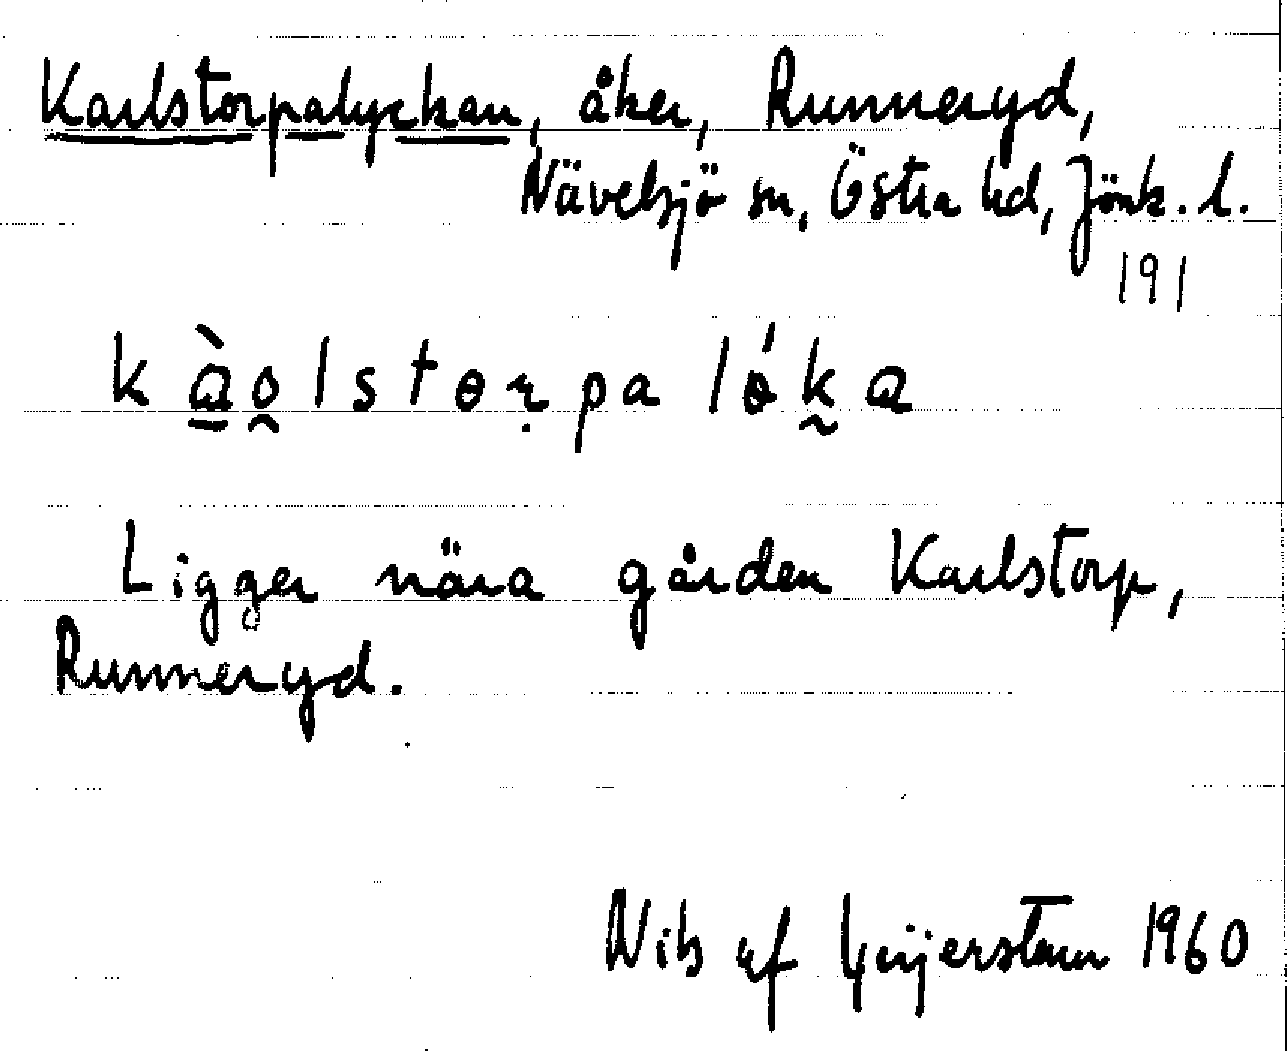 Karlstorpalyckan, åker, Runneryd,
Nävelsjö sn, Östra hd, Jönk. l.
191
kàolstɵrpa lɵ́ka
Ligger nära gården Karlstorp,
Runneryd.
Nils af Geijerstam 1960